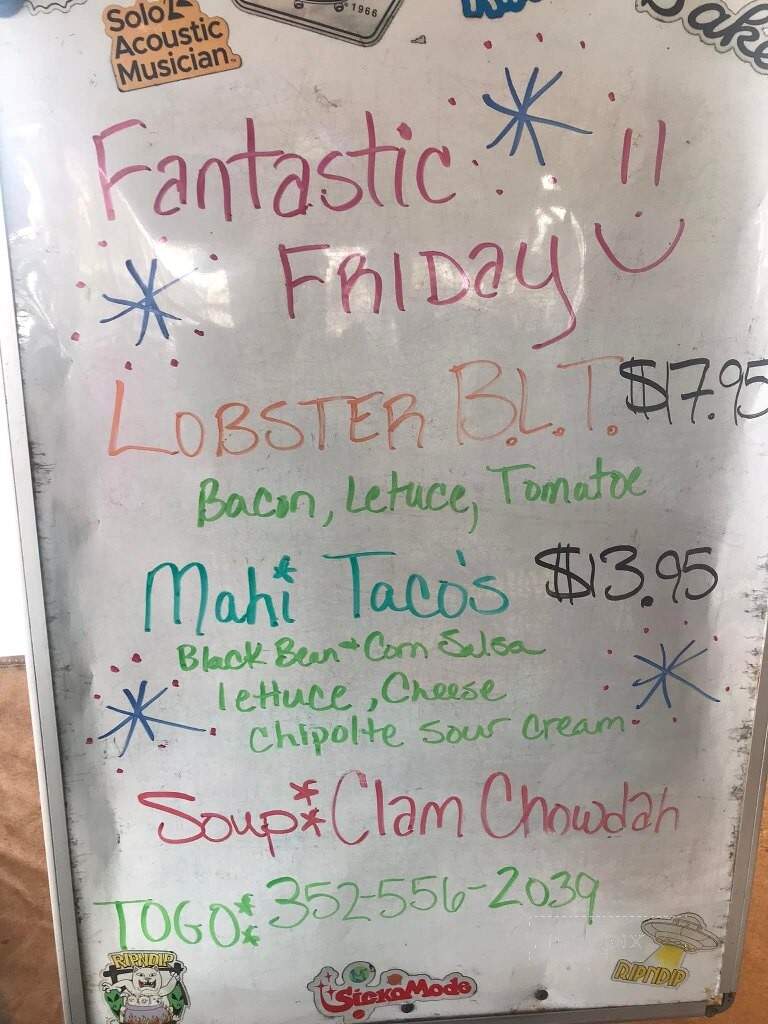 Solo
Acoustic
Musician
1966
ake
Fantastic !!
FRIDay
LOBSTER B.L.T. $17.95
Bacon, Letuce, Tomatoe
Mahi Taco's $13.95
Black Bean + Corn Salsa
lettuce, Cheese
Chipolte Sour Cream
Soup: Clam Chowdah
TOGO: 352-556-2039
RIPNDIP
SickoMode
RIPNDIP